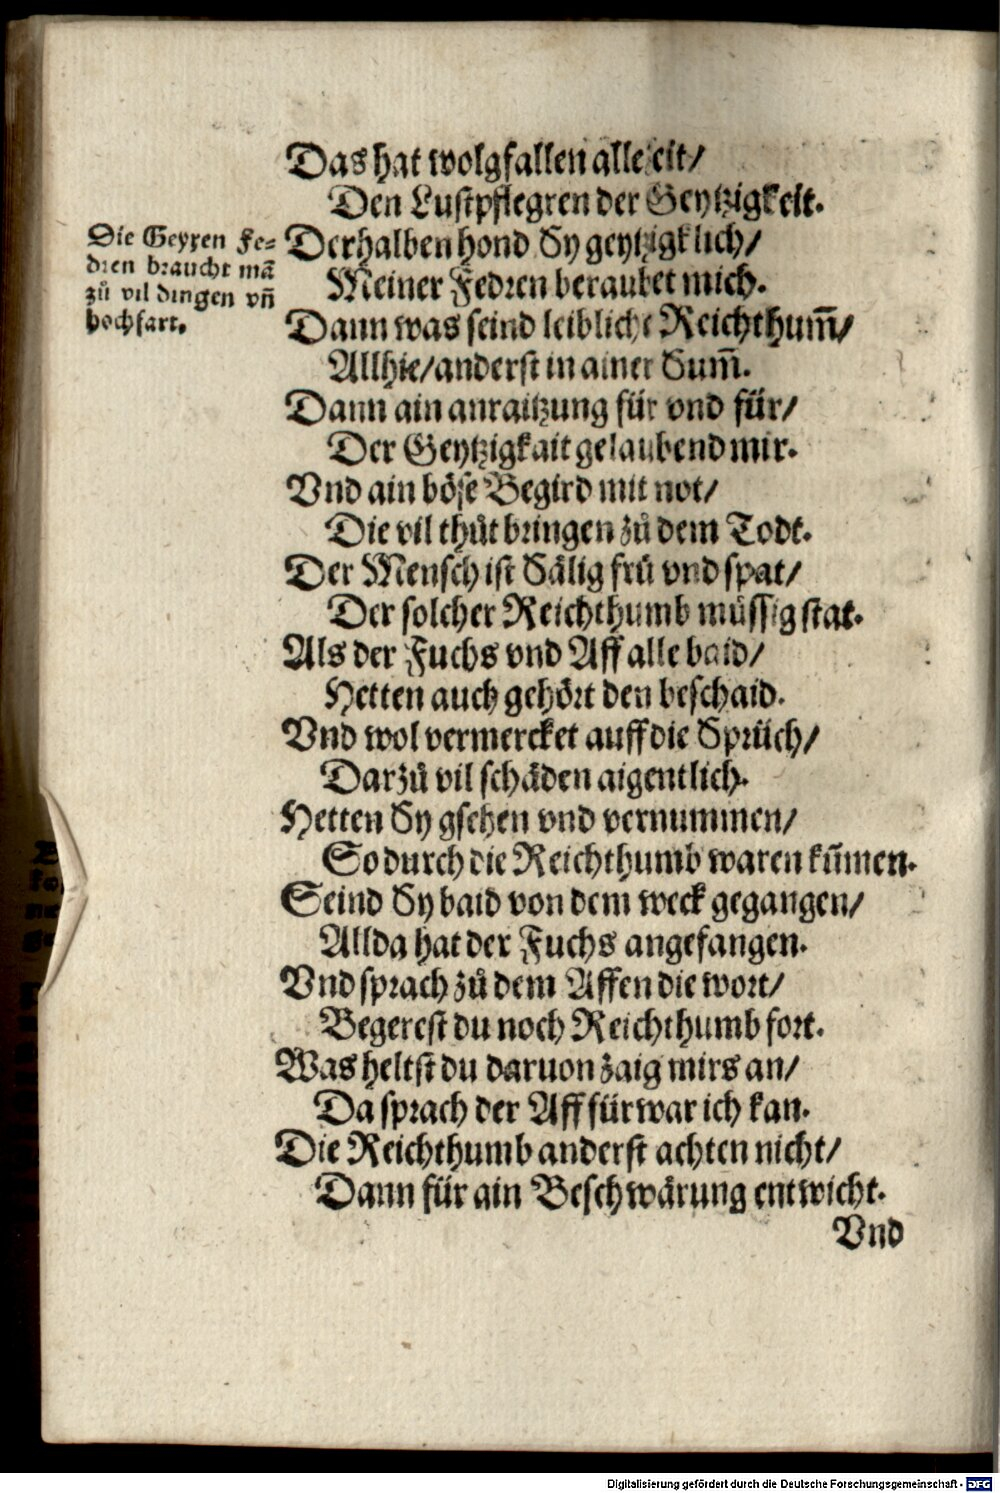 Das hat wolgfallen alle zeit/
Den Lustpflegren der Geytzigkeit.
Die Geyren Fe-
dren braucht mā
zů vil dingen vñ
hochfart.
Derhalben hond Sy geytzigklich/
Meiner Fedren beraubet mich.
Dann was seind leibliche Reichthum̄/
Allhie/anderst in ainer Sum̄.
Dann ain anraitzung für vnd für/
Der Geytzigkait gelaubend mir.
Vnd ain böse Begird mit not/
Die vil thůt bringen zů dem Todt.
Der Mensch ist Sälig frü vnd spat/
Der solcher Reichthumb müssig stat.
Als der Fuchs vnd Aff alle baid/
Hetten auch gehört den beschaid.
Vnd wol vermercket auff die Sprüch/
Darzů vil schäden aigentlich.
Hetten Sy gsehen vnd vernummen/
So durch die Reichthumb waren kum̄en.
Seind Sy baid von dem weck gegangen/
Allda hat der Fuchs angefangen.
Vnd sprach zů dem Affen die wort/
Begerest du noch Reichthumb fort.
Was heltst du daruon zaig mirs an/
Da sprach der Aff fürwar ich kan.
Die Reichthumb anderst achten nicht/
Dann für ain Beschwärung entwicht.
Vnd
Digitalisierung gefördert durch die Deutsche Forschungsgemeinschaft - DFG